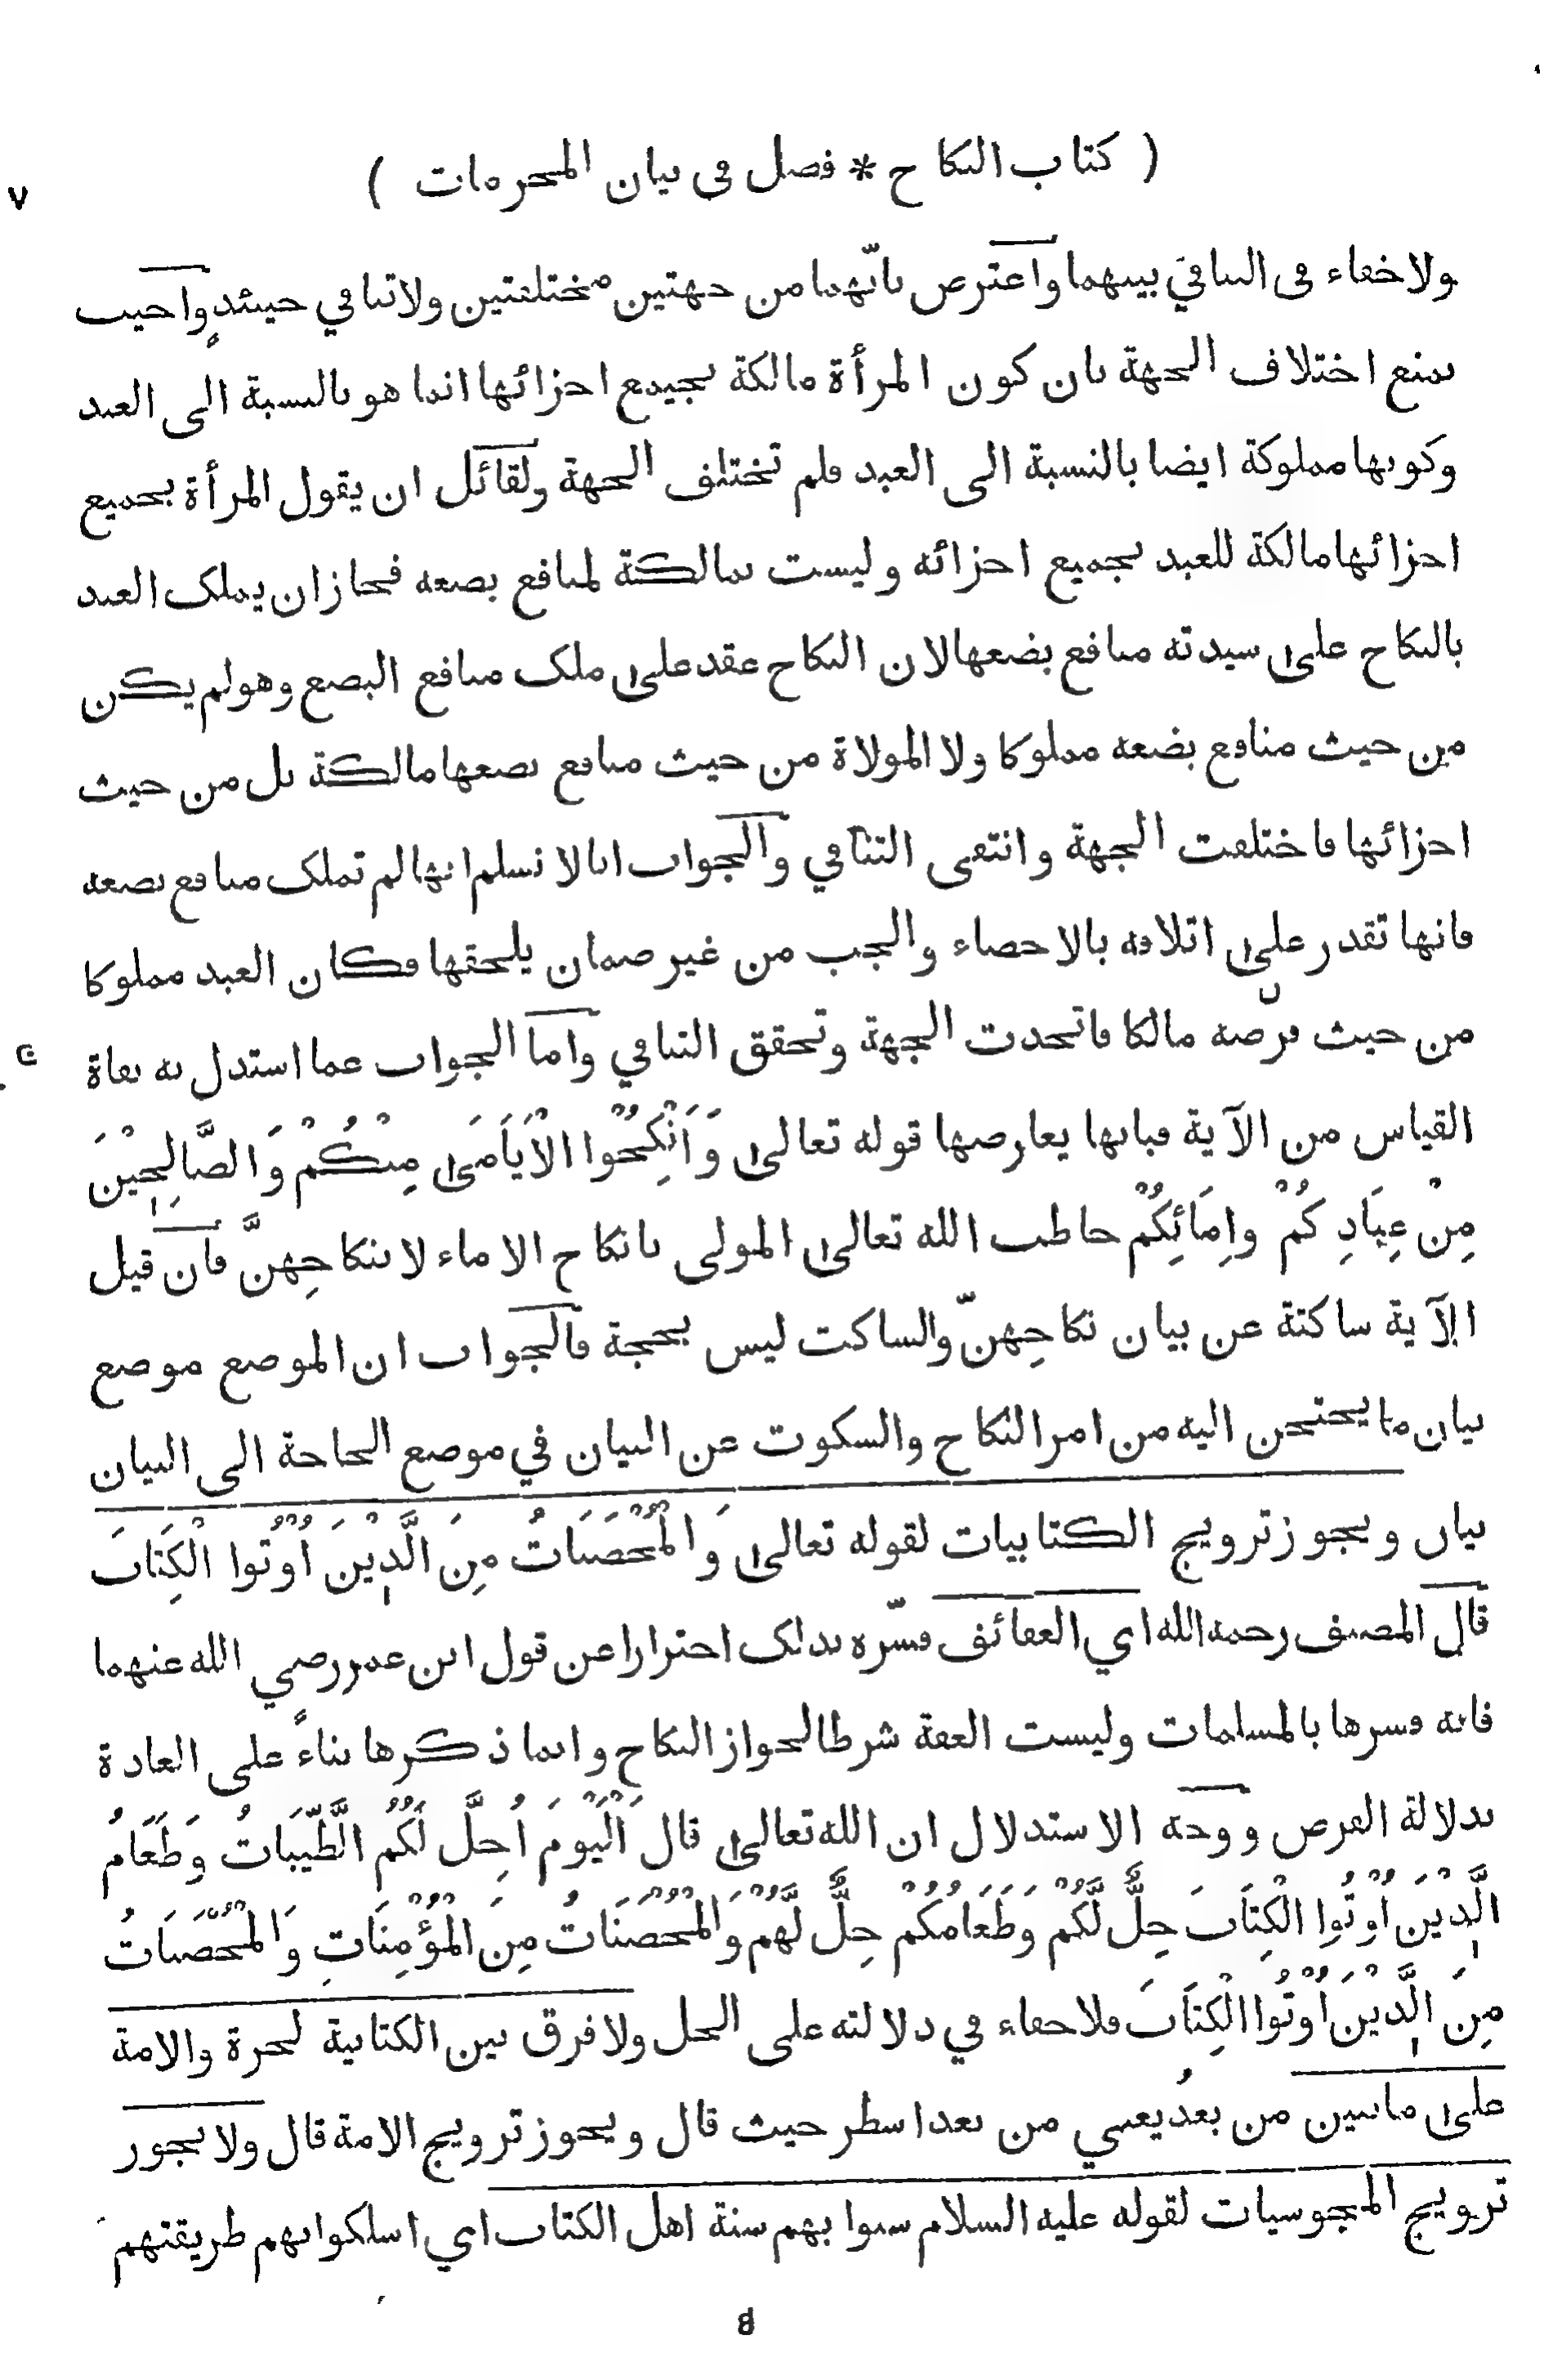 ( كتاب النكاح * فصل فى بيان المحرمات )
٧
ولا خفاء فى التنافي بينهما واعترض بانّهما من جهتين مختلفتين ولاتنافي حينئذٍ واجيب
بمنع اختلاف الجهة بان كون المرأة مالكة بجيمع اجزائها انما هو بالنسبة الى العبد
وكونها مملوكة ايضا بالنسبة الى العبد فلم تختلف الجهة ولقائل ان يقول المرأة بجميع
اجزائها مالكة للعبد بجميع اجزائه وليست بمالكة لمنافع بضعه فجاز ان يملك العبد
بالنكاح على سيدته منافع بضعها لان النكاح عقد على ملك منافع البضع وهو لم يكن
من حيث منافع بضعه مملوكا ولا المولاة من حيث منافع بضعها مالكة بل من حيث
اجزائها فاختلفت الجهة وانتفى التنافي والجواب انا لا نسلم انها لم تملك منافع بضعه
فانها تقدر على اتلافه بالاخصاء والجب من غير ضمان يلحقها فكان العبد مملوكا
من حيث مالكا فاتحدت الجهة وتحقق التنافي واما الجواب عما استدل به نفاة
القياس من الآية فبانها يعارضها قوله تعالى وَاَنْكِحُوا الْاَيَامَى مِنْكُمْ وَالصَّالِحِيْنَ
مِنْ عِبَادِ كُمْ وإمَائِكُمْ خاطب الله تعالى المولى بانكاح الاماء لا بنكاحِهنَّ فان قيل
الآية ساكتة عن بيان نكاحِهنّ والساكت ليس بحجة فالجواب ان الموضع موضع
بيان ما يحتجن اليه من امر النكاح والسكوت عن البيان في موضع الحاجة الى البيان
بيان ويجوز ترويج الكتابيات لقوله تعالى وَالْمُحْصَنَاتُ مِنَ الَّذِيْنَ اُوْتُوا الْكِتَابَ
قال المصنف رحمه الله اي العفائف فسّره بذلك احترازا عن قول ابن عمر رضي الله عنهما
فانه فسرها بالمسلمات وليست العفة شرطا لجواز النكاح وانما ذكرها بناءً على العادة
بدلالة الفرض ووجه الاستدلال ان الله تعالى قال اَلْيَوْمَ اُحِلَّ لَكُمُ الطَّيِّبَاتُ وَطَعَامُ
الَّذِيْنَ اُوْتُوا الْكِتَابَ حِلٌّ لَّكُمْ وَطَعَامُكُمْ حِلٌّ لَّهُمْ وَالْمُحْصَنَاتُ مِنَ الْمُؤْمِنَاتِ وَالْمُحْصَنَاتُ
مِنَ الَّذِيْنَ اُوْتُوا الْكِتَابَ فلا خفاء في دلالته على الحل ولا فرق بين الكتابية لحرة والامة
على ما نبين من بعدُ يعني من بعد اسطر حيث قال ويجوز ترويج الامة قال ولا يجوز
ترويج المجوسيات لقوله عليه السلام سنوا بهم سنة اهل الكتاب اي اسلكوا بهم طريقتهم